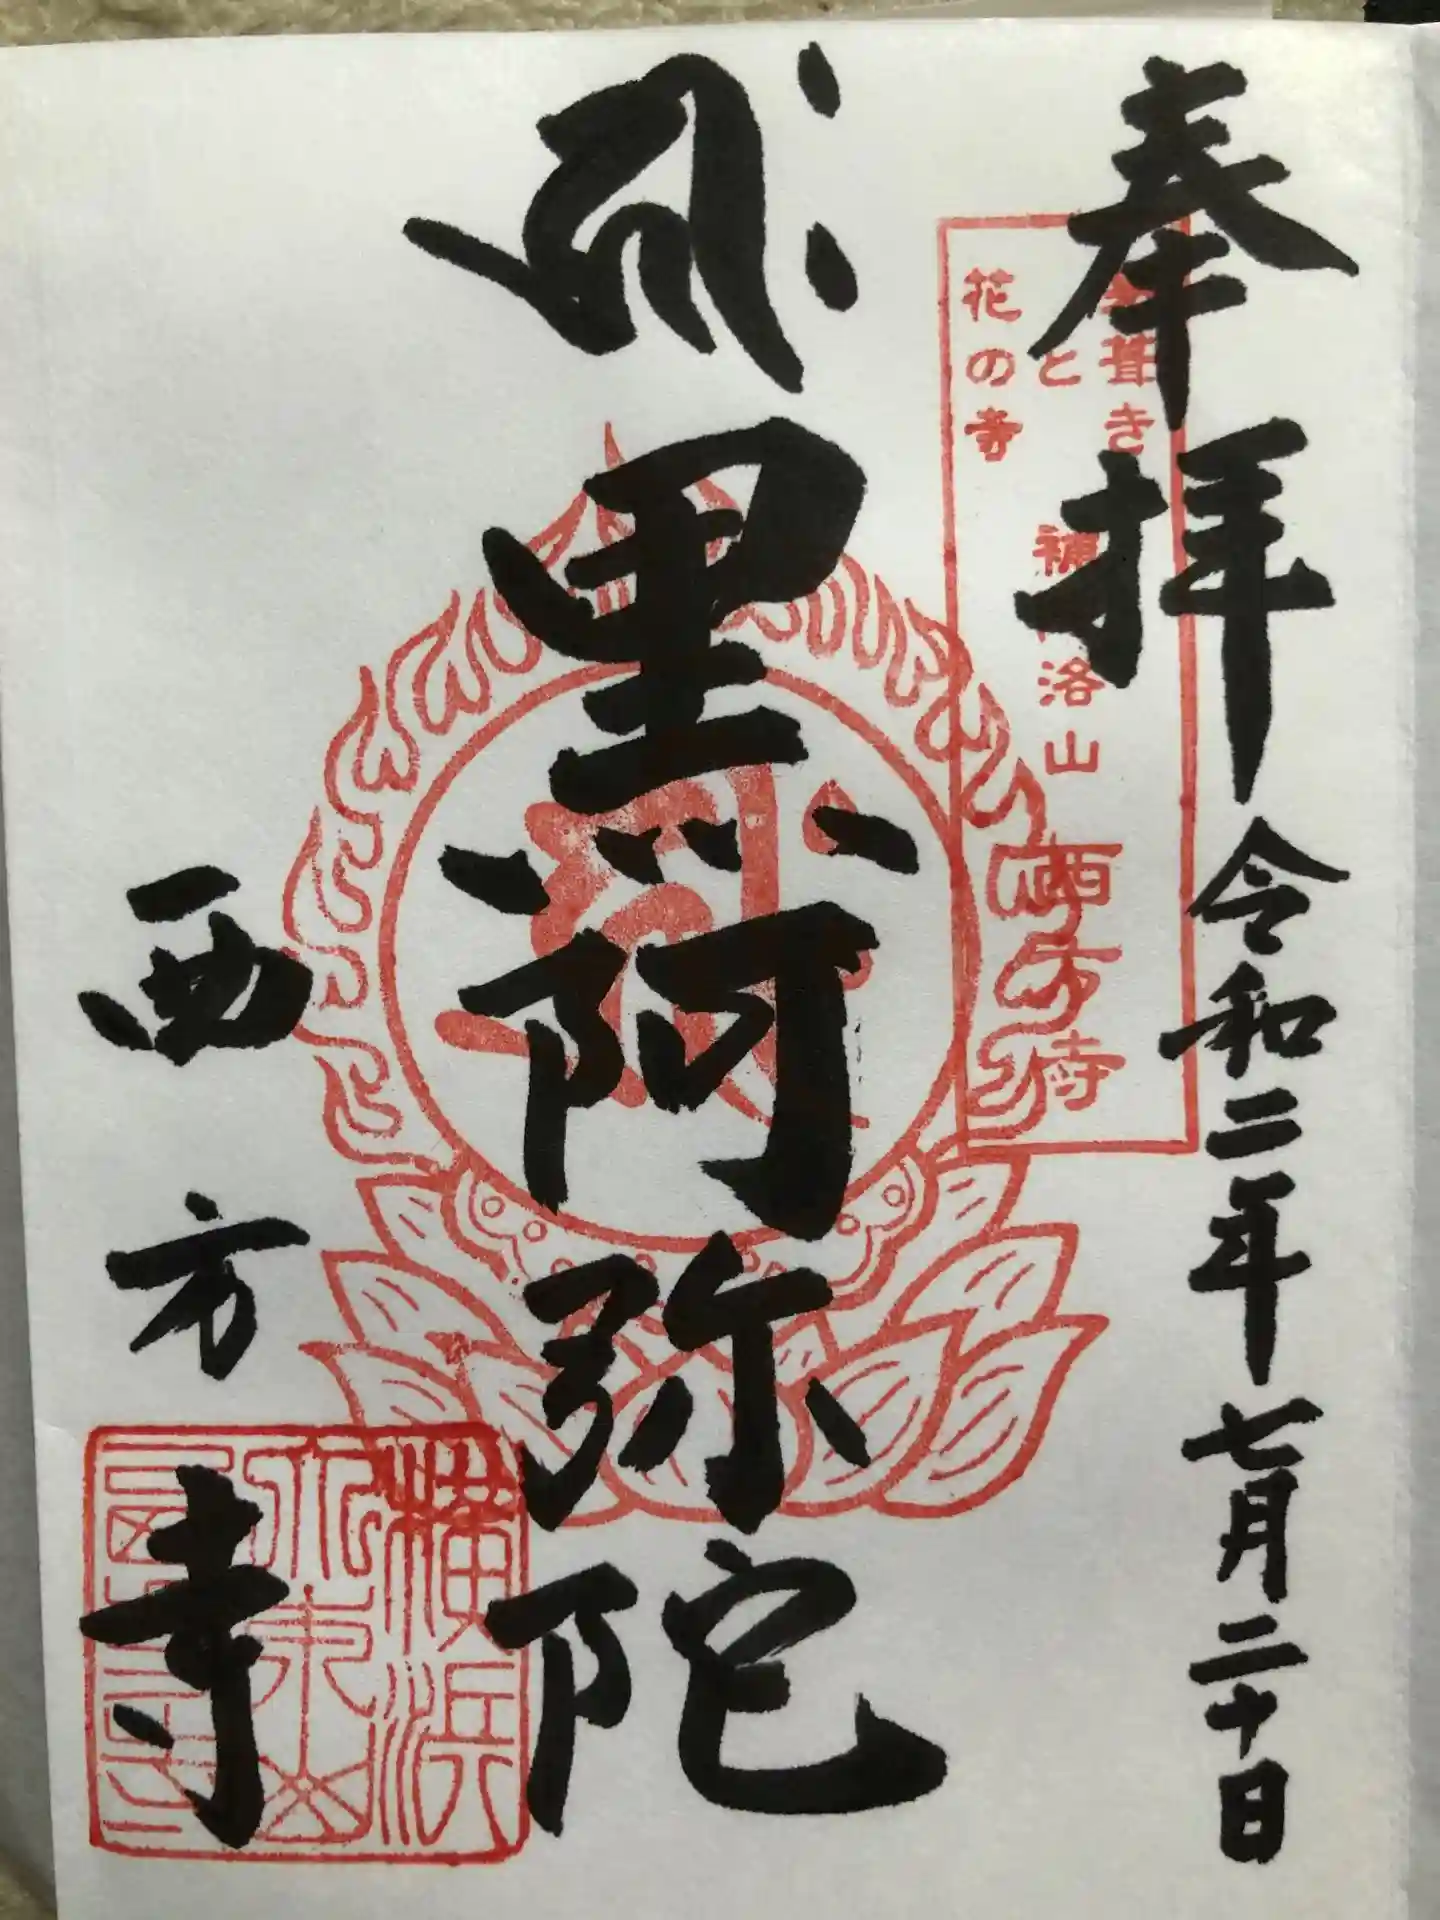 奉拝
令和二年七月二十日
葺き
と
花の寺
補
洛山
西方寺
黒阿弥陀
西方寺
横浜